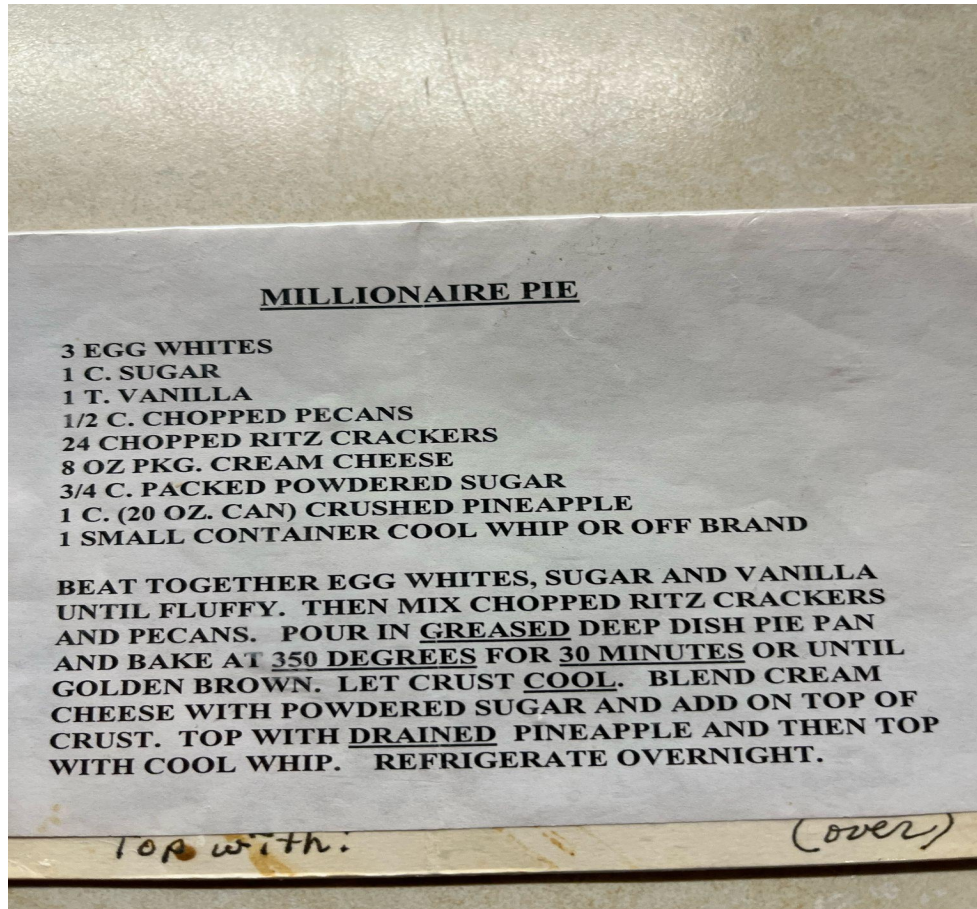 MILLIONAIRE PIE
3 EGG WHITES
1 C. SUGAR
1 T. VANILLA
1/2 C. CHOPPED PECANS
24 CHOPPED RITZ CRACKERS
8 OZ PKG. CREAM CHEESE
3/4 C. PACKED POWDERED SUGAR
1 C. (20 OZ. CAN) CRUSHED PINEAPPLE
1 SMALL CONTAINER COOL WHIP OR OFF BRAND
BEAT TOGETHER EGG WHITES, SUGAR AND VANILLA
UNTIL FLUFFY. THEN MIX CHOPPED RITZ CRACKERS
AND PECANS. POUR IN GREASED DEEP DISH PIE PAN
AND BAKE AT 350 DEGREES FOR 30 MINUTES OR UNTIL
GOLDEN BROWN. LET CRUST COOL. BLEND CREAM
CHEESE WITH POWDERED SUGAR AND ADD ON TOP OF
CRUST. TOP WITH DRAINED PINEAPPLE AND THEN TOP
WITH COOL WHIP. REFRIGERATE OVERNIGHT.
Top with: (over)